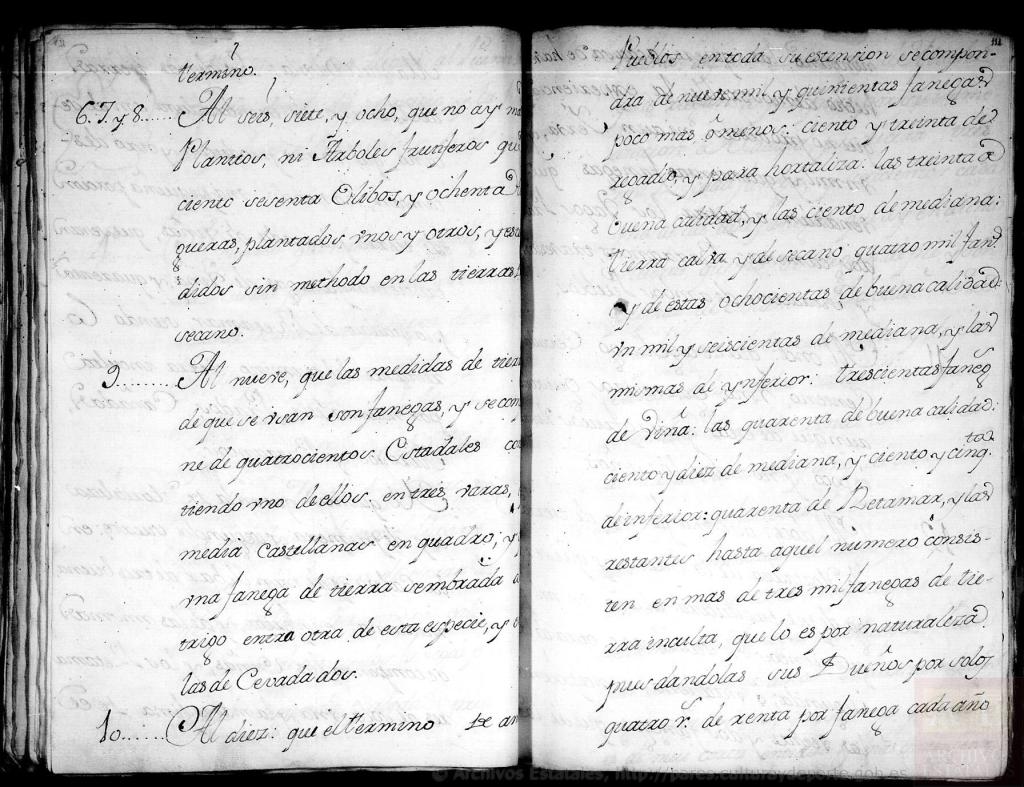 termino.
6. 7. y 8...... Al seis, siete, y ocho, que no ay m
Plantios, ni Arboles frutiferos qu
ciento sesenta Olibos, y ochenta
gueras, plantados, vnos y otros, y
didos sin methodo en las tierras
secano.
9........ Al nueve, que las medidas de tier
de que se vsan son fanegas, y se com
ne de quatrocientos Estadales co
tiendo vno de ellos en tres varas,
media castellanas en quadro; y
vna fanega de tierra sembrada
trigo entra otra de esta especie, y
las de Cevada dos.
10...... Al diez: que el termino
111
Pueblos en toda su estension se compon-
dra de nueve mil y quinientas fanegas
poco mas ô menos: ciento y treinta de
regadio, y para hortaliza: las treinta de
buena calidad, y las ciento de mediana:
tierra calva y de secano quatro mil fan.s
y de estas ochocientas de buena calidad:
vn mil y seiscientas de mediana, y las
mismas de ynferior: trescientas faneg.s
de viña: las quarenta de buena calidad:
ciento y diez de mediana, y ciento y cinq.ta
de inferior: quarenta de Retamar, y las
restantes hasta aquel numero consis-
ten en mas de tres mil fanegas de tie-
rra inculta, que lo es por naturaleza
pues dandolas sus Dueños por solos
quatro r.s de renta por fanega cada año
© Archivos Estatales, http://pares.culturaydeporte.gob.es